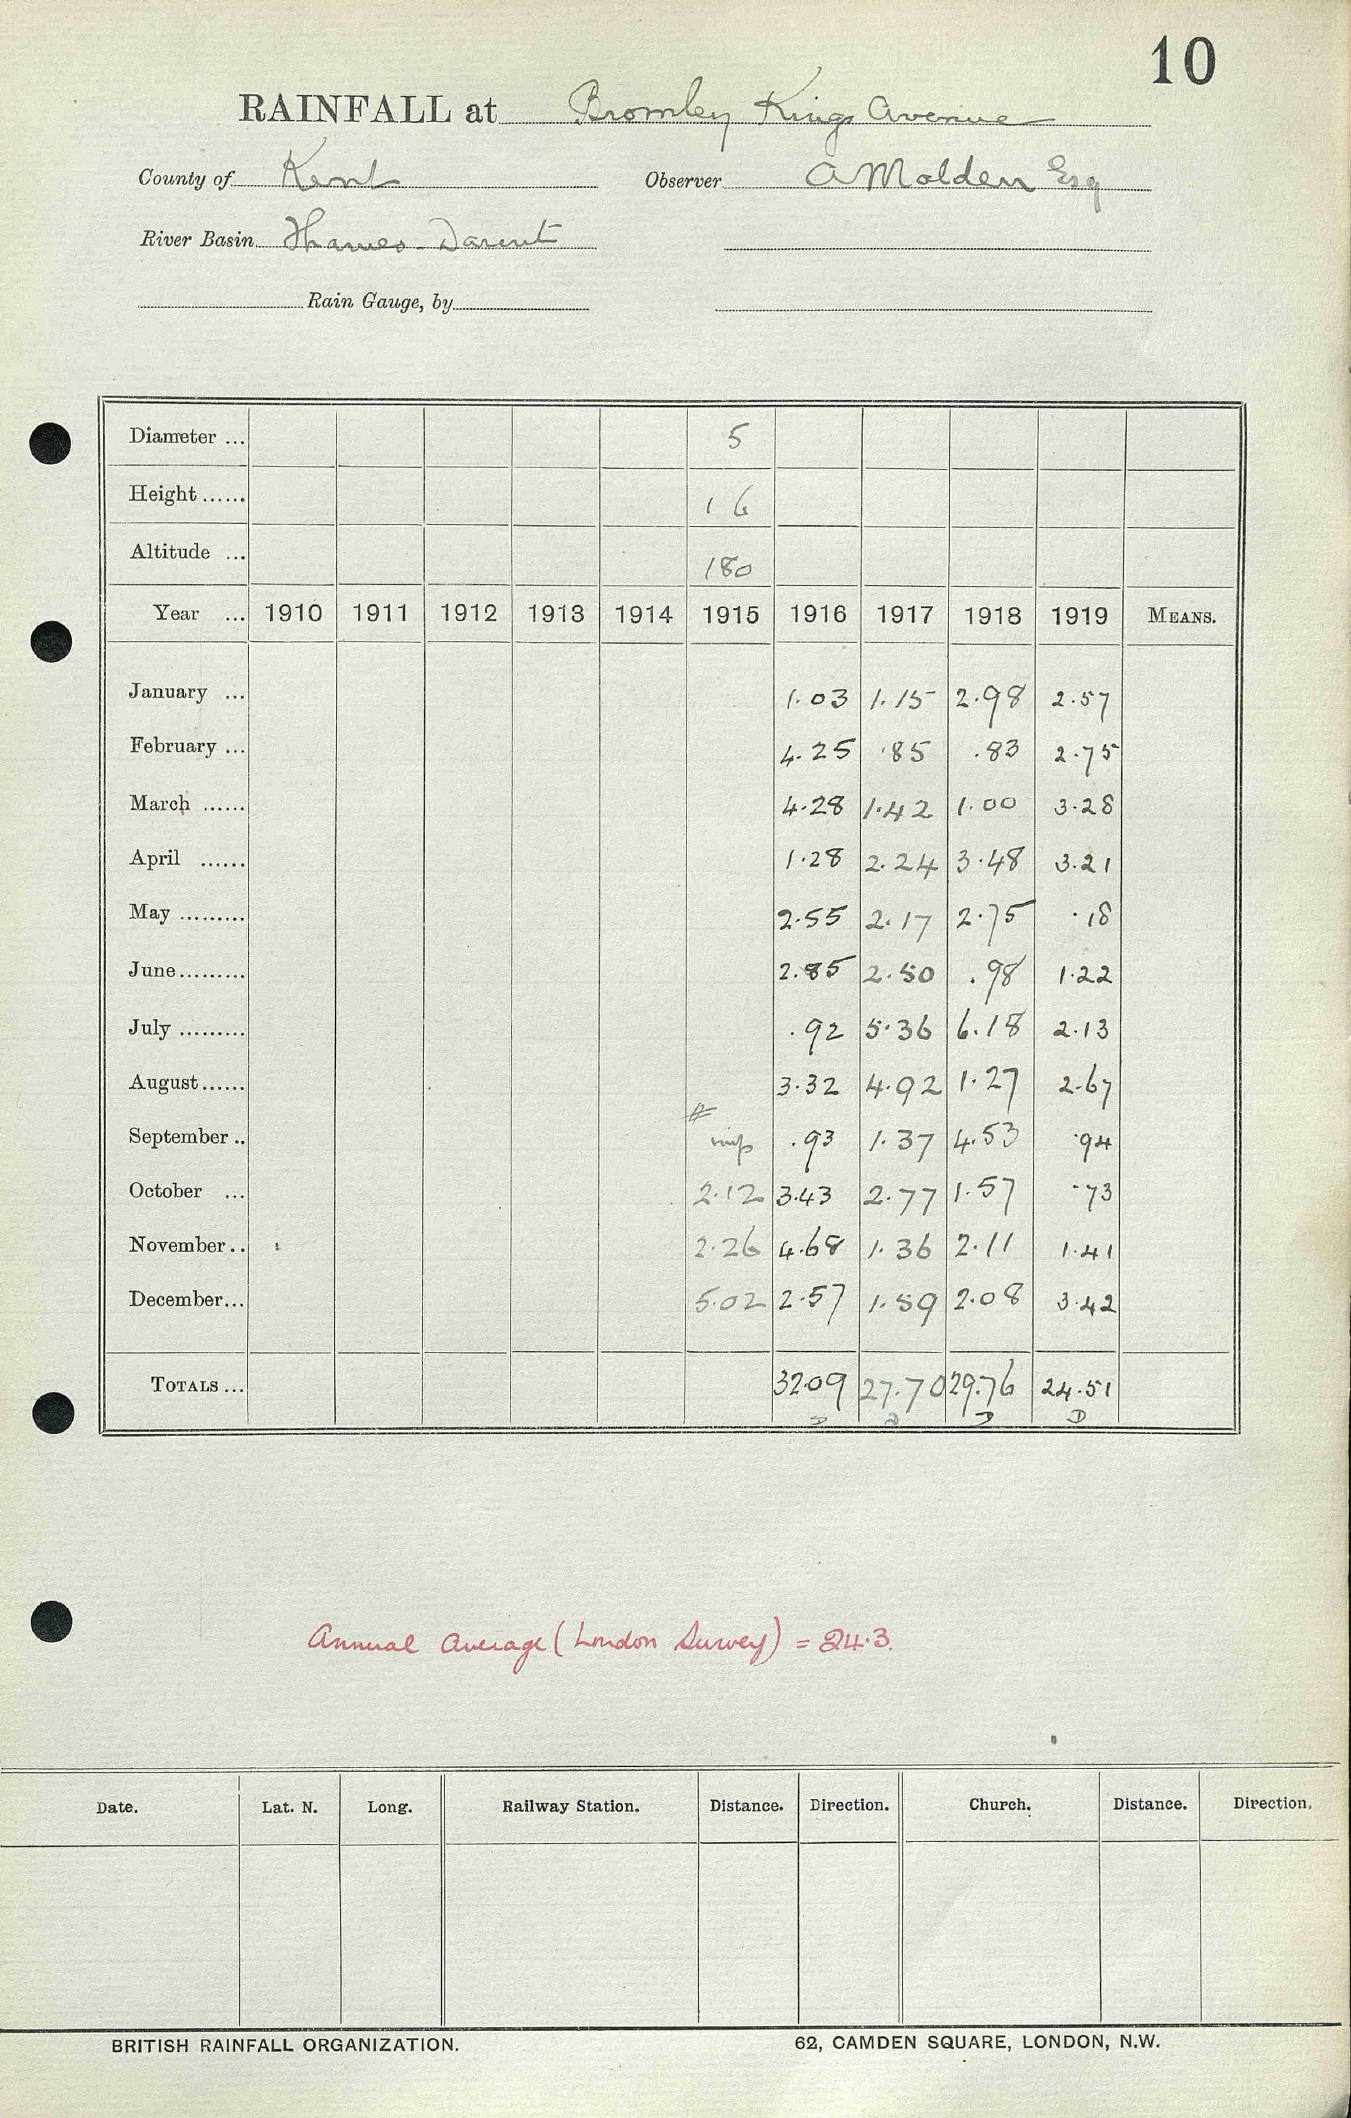 10
RAINFALL at Bromley Kings Avenue
County of Kent Observer A Molden Esq
River Basin Thames-Darent
Rain Gauge, by
Diameter ... 5
Height ...... 1 6
Altitude ... 180
Year ... 1910 1911 1912 1913 1914 1915 1916 1917 1918 1919 MEANS.
January ... 1.03 1.15 2.98 2.57
February ... 4.25 .85 .83 2.75
March ...... 4.28 1.42 1.00 3.28
April ...... 1.28 2.24 3.48 3.21
May ......... 2.55 2.17 2.75 .18
June ......... 2.85 2.50 .98 1.22
July ......... .92 5.36 6.18 2.13
August ...... 3.32 4.92 1.27 2.67
September .. .93 1.37 4.53 .94
October ... 2.12 3.43 2.77 1.57 .73
November .. 2.26 4.68 1.36 2.11 1.41
December ... 5.02 2.57 1.59 2.08 3.42
TOTALS ... 32.09 27.70 29.76 24.51
D D D D
Annual Average (London Survey) = 24.3.
Date. Lat. N. Long. Railway Station. Distance. Direction. Church. Distance. Direction.
BRITISH RAINFALL ORGANIZATION. 62, CAMDEN SQUARE, LONDON, N.W.